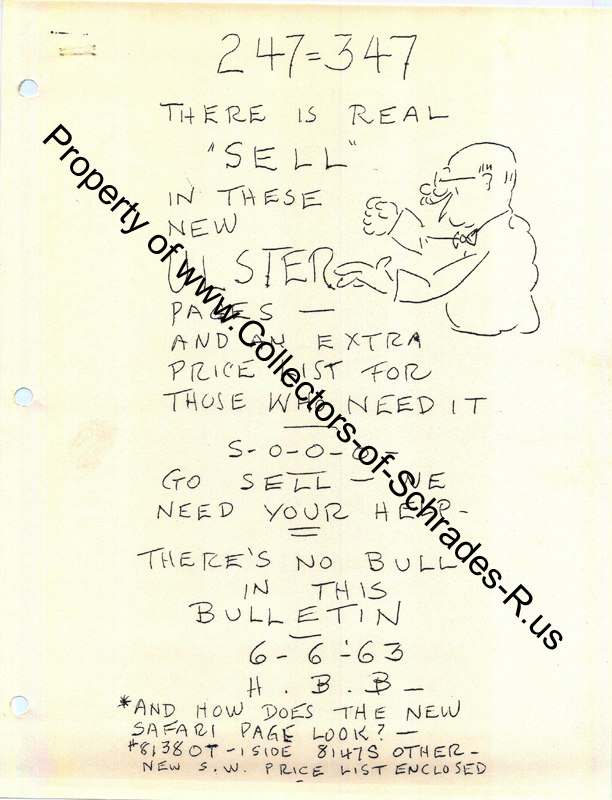 247=347
THERE IS REAL
"SELL"
IN THESE
NEW
ULSTER
PAGES —
AND AN EXTRA
PRICE LIST FOR
THOSE WHO NEED IT
S-O-O-O-
GO SELL — WE
NEED YOUR HELP-
THERE'S NO BULL
IN THIS
BULLETIN
6-6-63
H. B. B —
*AND HOW DOES THE NEW
SAFARI PAGE LOOK? —
#8138OT - 1SIDE 8147S OTHER -
NEW S.W. PRICE LIST ENCLOSED
Property of www.Collectors-of-Schrades-R.us